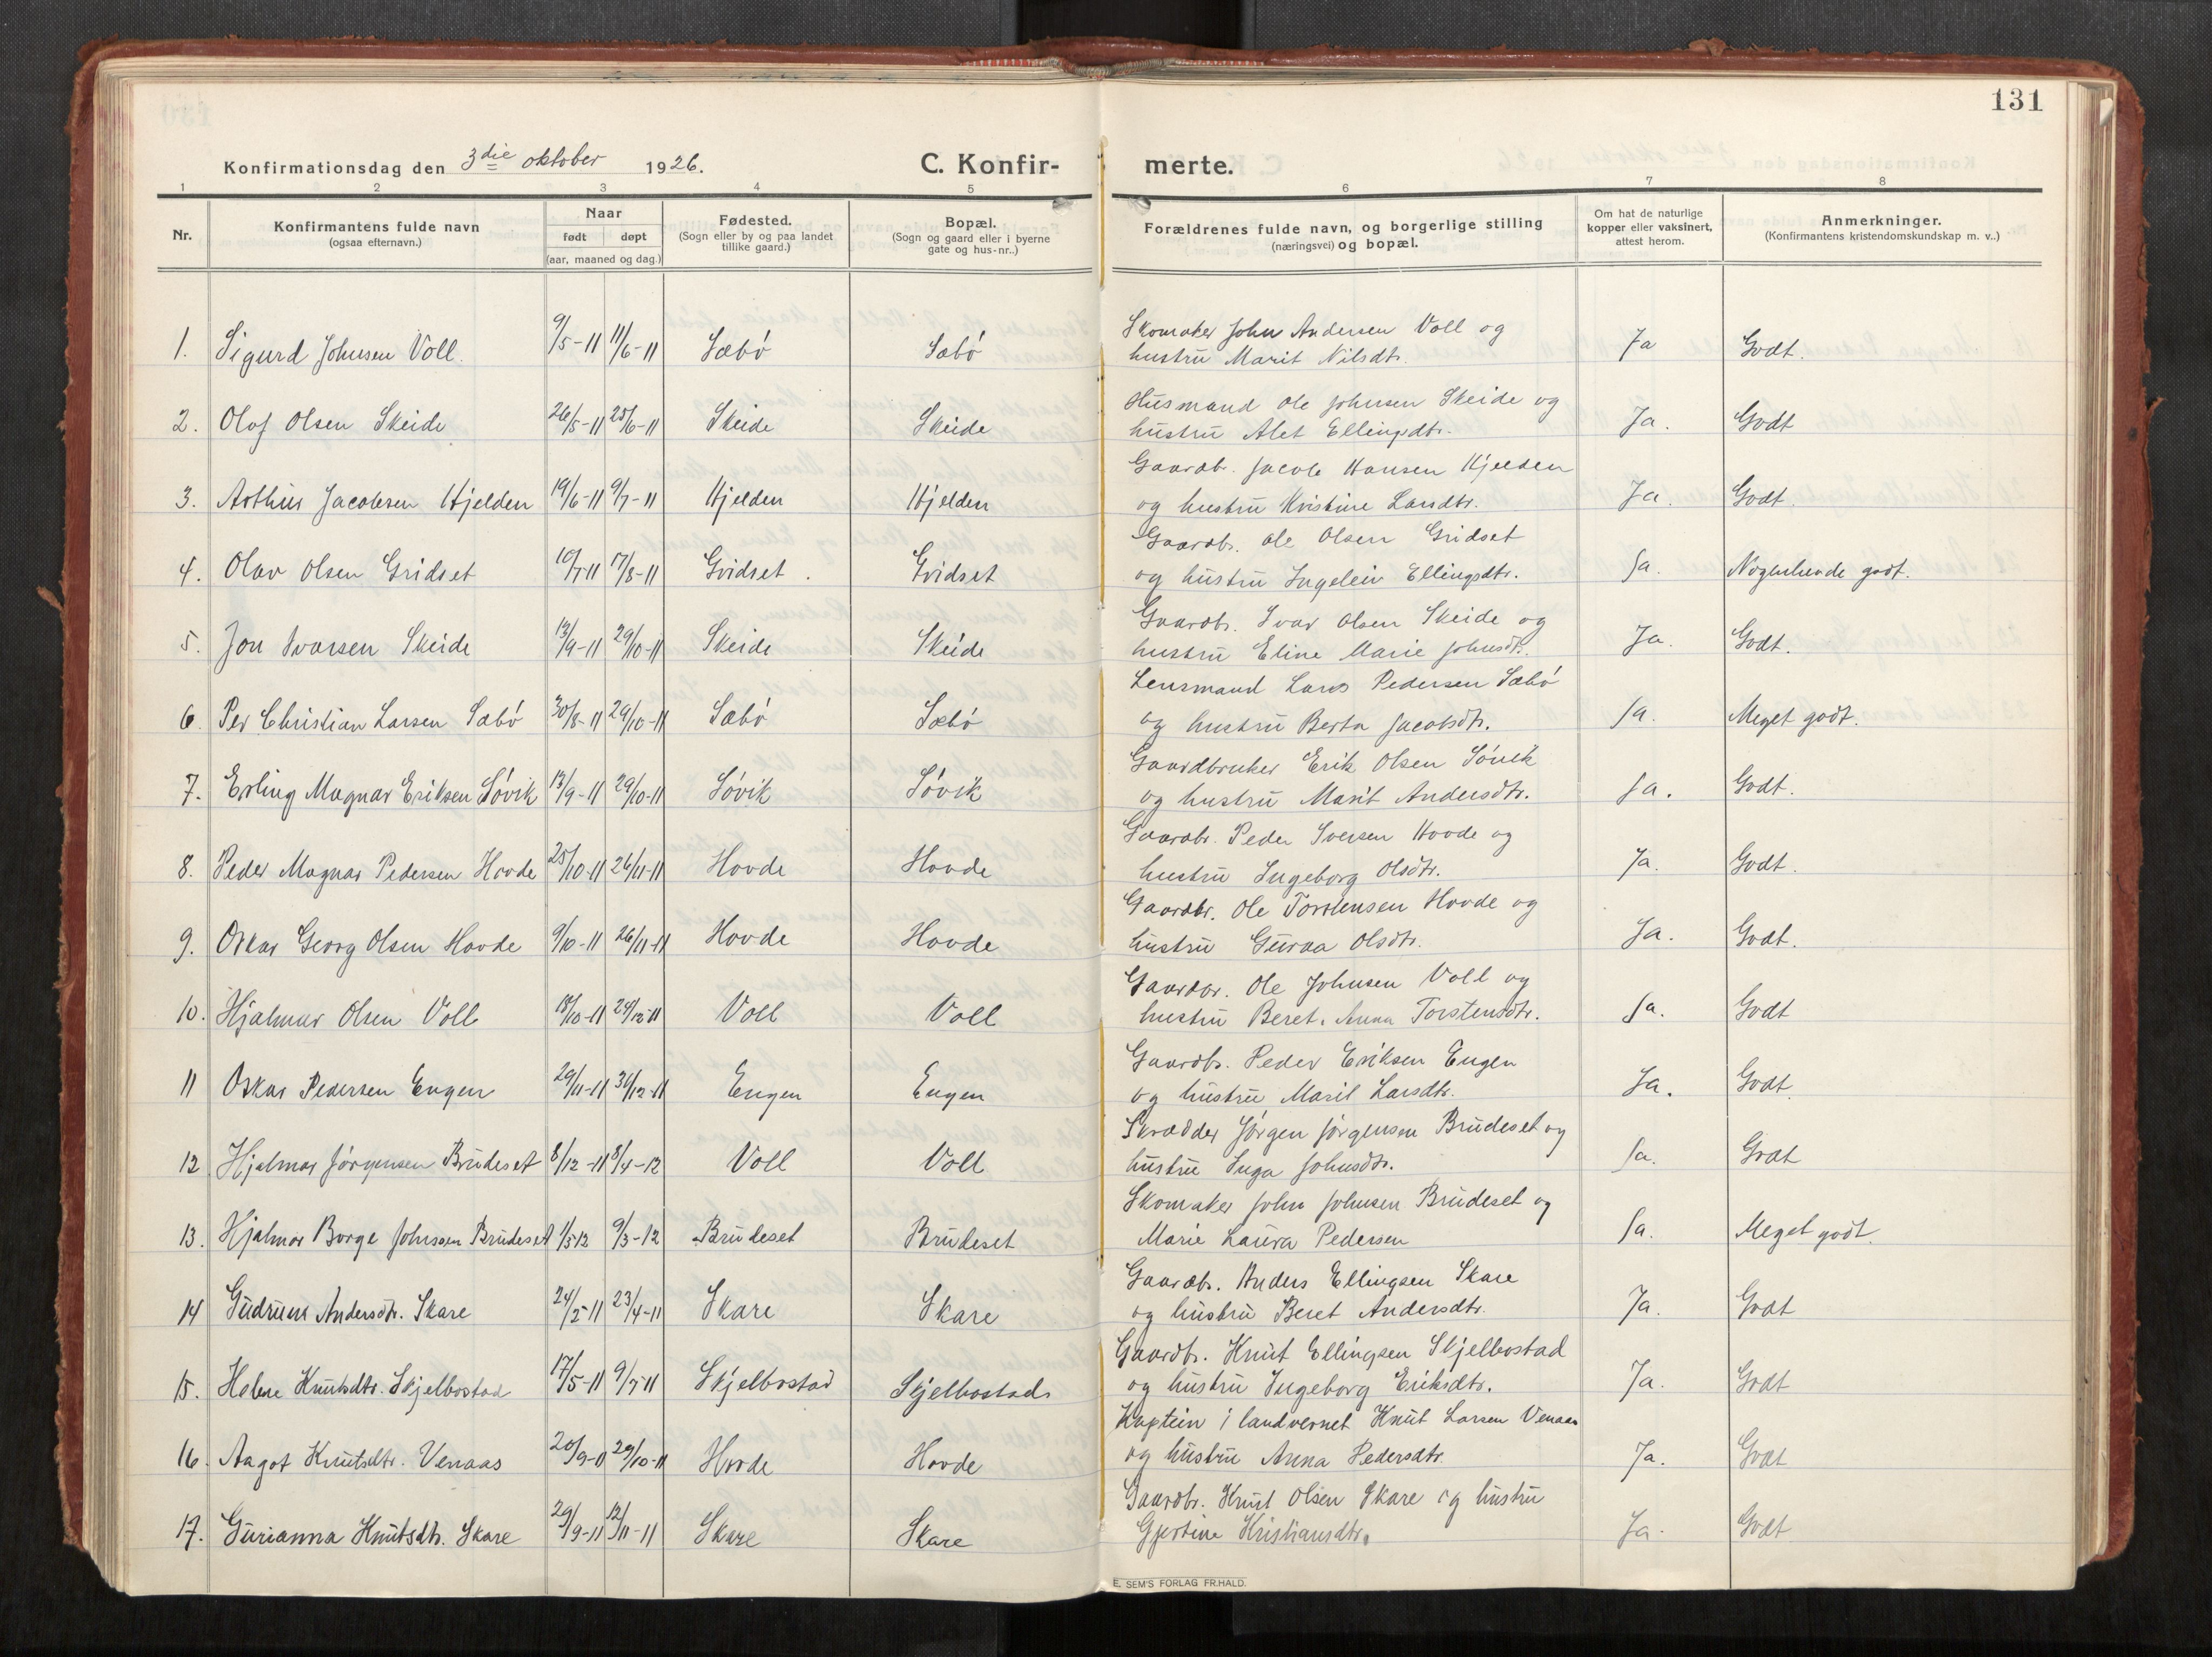 131
Konfirmationsdag den 3die oktober 1926. C. Konfirmerte.
1 2 3 4 5 6 7 8
Nr. Konfirmantens fulde navn (ogsaa efternavn.) Naar født døpt (aar, maaned og dag.) Fødested. (Sogn eller by og paa landet tillike gaard.) Bopæl. (Sogn og gaard eller i byerne gate og hus-nr..) Forældrenes fulde navn, og borgerlige stilling (næringsvei) og bopæl. Om hat de naturlige kopper eller vaksinert, attest herom. Anmerkninger. (Konfirmantens kristendomskundskap m. v..)
1. Sigurd Johnsen Voll. 9/5-11 11/6-11 Sæbö Sæbö Skomaker John Andersen Voll og
hustru Marit Nilsdtr. Ja Godt.
2. Olaf Olsen Skeide 26/5-11 25/6-11 Skeide Skeide Husmand Ole Johnsen Skeide og
hustru Alet Ellingsdtr. Ja. Godt
3. Arthur Jacobsen Hjelden 19/6-11 9/7-11 Hjelden Hjelden Gaardb. Jacob Hansen Hjelden
og hustru Kristine Larsdtr. Ja. Godt.
4. Olav Olsen Gridset 10/7-11 17/8-11 Gridset. Gridset Gaardb. Ole Olsen Gridset
og hustru Ingeleiv Ellingsdtr. Ja. Nogenlunde godt.
5. Jon Ivarsen Skeide 13/9-11 29/10-11 Skeide Skeide Gaardbr. Ivar Olsen Skeide og
hustru Eline Marie Johnsdtr. Ja. Godt.
6. Per Christian Larsen Sæbö 30/8-11 29/10-11 Sæbö Sæbö Lensmand Lars Pedersen Sæbö
og hustru Berta Jacobsdtr. Ja. Meget godt.
7. Erling Magnar Eriksen Sövik 13/9-11 29/10-11 Sövik Sövik Gaardbruker Erik Olsen Sövik
og hustru Marit Andersdtr. Ja. Godt.
8. Peder Magnar Pedersen Hovde 25/10-11 26/11-11 Hovde Hovde Gaardbr. Peder Iversen Hovde og
hustru Ingeborg Olsdtr. Ja. Godt.
9. Oskar Georg Olsen Hovde 9/10-11 26/11-11 Hovde Hovde Gaardbr. Ole Torstensen Hovde og
hustru Guraa Olsdtr. Ja. Godt.
10. Hjalmar Olsen Voll 18/10-11 24/12-11 Voll Voll Gaardbr. Ole Johnsen Voll og
hustru Beret Anna Torstensdtr. Ja. Godt
11 Oskar Pedersen Engen 29/11-11 31/12-11 Engen Engen Gaardbr. Peder Eriksen Engen
og hustru Marit Larsdtr. Ja. Godt.
12 Hjalmar Jörgensen Brudeset 8/12-11 8/4-12 Voll Voll Skrædder Jörgen Jörgensen Brudeset og
hustru Inga Johnsdtr. Ja. Godt
13. Hjalmar Borge Johnsen Brudeset 1/3-12 9/3-12 Brudeset Brudeset Skomaker John Johnsen Brudeset og
Marie Laura Pedersen Ja. Meget godt.
14 Gudrun Andersdtr. Skare 24/2-11 23/4-11 Skare Skare Gaardbr. Anders Ellingsen Skare
og hustru Beret Andersdtr. Ja. Godt
15. Helene Knutsdtr. Skjelbostad 17/5-11 9/7-11 Skjelbostad Skjelbostad Gaardbr. Knut Ellingsen Skjelbostad
og hustru Ingeborg Eriksdtr. Ja. Godt
16. Aagot Knutsdtr. Venaas 20/9-11 29/10-11 Hovde Hovde Kaptein i landvernet Knut Larsen Venaas
og hustru Anna Pedersdtr. Ja. Godt
17. Gurianna Knutsdtr. Skare 29/9-11 12/11-11 Skare Skare Gaardbr. Knut Olsen Skare og hustru
Gjertine Kristiansdtr. Ja. Godt
E. SEM'S FORLAG FR.HALD.